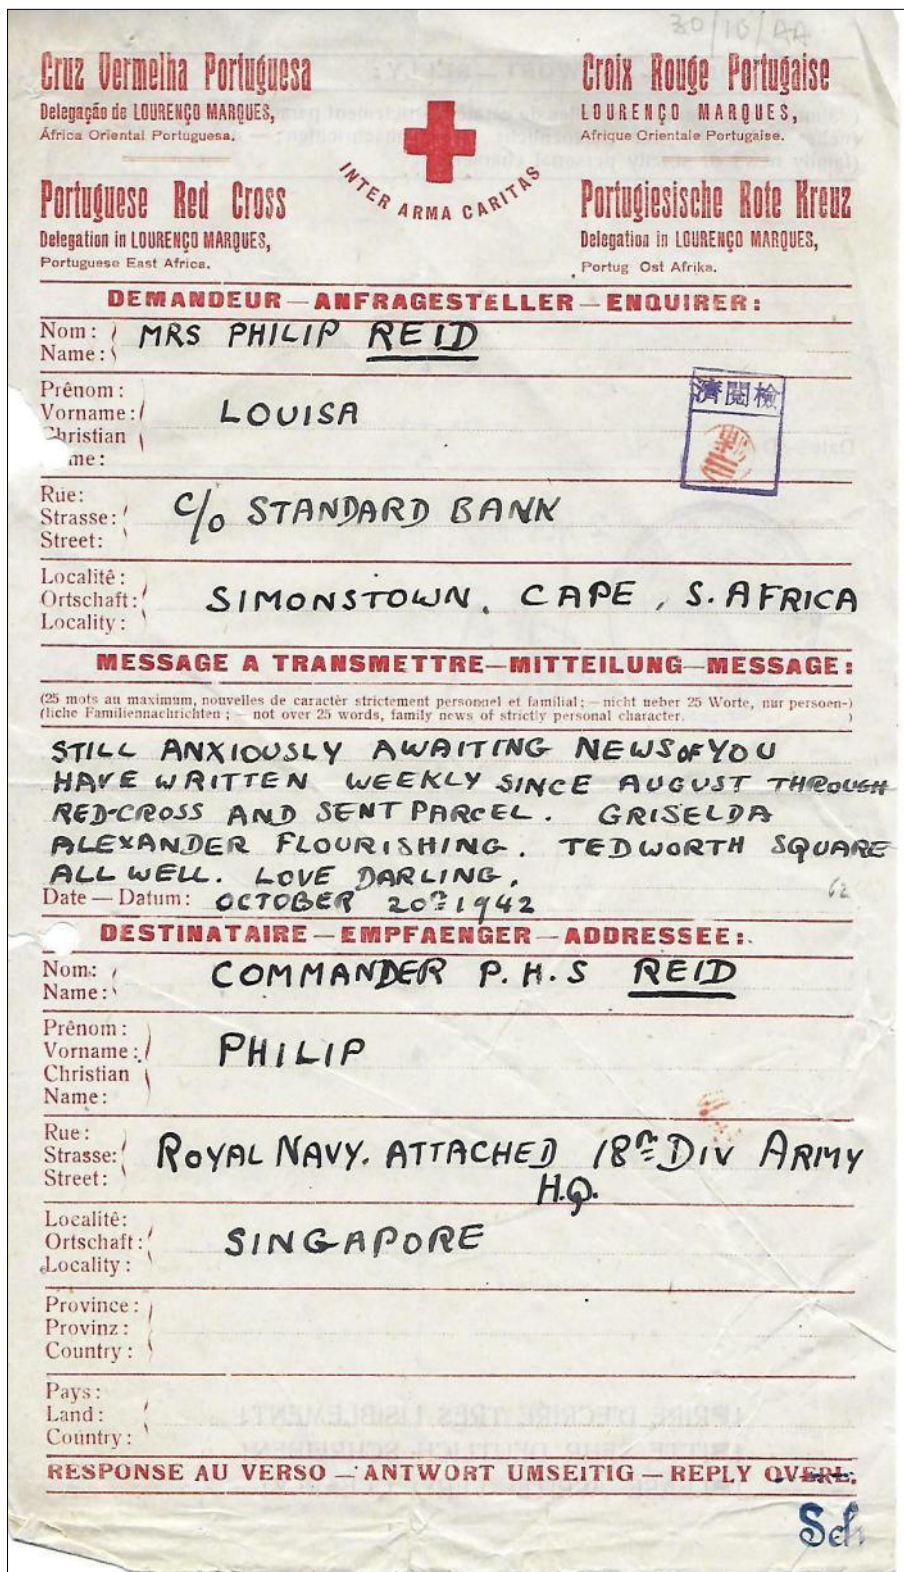 30/10/44
Cruz Vermelha Portuguesa
Delegação de LOURENÇO MARQUES,
África Oriental Portuguesa.
Croix Rouge Portugaise
LOURENÇO MARQUES,
Afrique Orientale Portugaise.
INTER ARMA CARITAS
Portuguese Red Cross
Delegation in LOURENÇO MARQUES,
Portuguese East Africa.
Portugiesische Rote Kreuz
Delegation in LOURENÇO MARQUES,
Portug Ost Afrika.
DEMANDEUR — ANFRAGESTELLER — ENQUIRER:
Nom:
Name:
MRS PHILIP REID
Prênom:
Vorname:
Christian
me:
LOUISA
檢閲濟
Rue:
Strasse:
Street:
C/O STANDARD BANK
Localité:
Ortschaft:
Locality:
SIMONSTOWN. CAPE, S. AFRICA
MESSAGE A TRANSMETTRE—MITTEILUNG—MESSAGE:
(25 mots au maximum, nouvelles de caractèr strictement personnel et familial; — nicht ueber 25 Worte, nur persoen-)
(liche Familiennachrichten; — not over 25 words, family news of strictly personal character. )
STILL ANXIOUSLY AWAITING NEWS OF YOU
HAVE WRITTEN WEEKLY SINCE AUGUST THROUGH
RED-CROSS AND SENT PARCEL. GRISELDA
ALEXANDER FLOURISHING. TEDWORTH SQUARE
ALL WELL. LOVE DARLING.
Date — Datum: OCTOBER 20TH 1942
62
DESTINATAIRE — EMPFAENGER — ADDRESSEE:
Nom:
Name:
COMMANDER P.H.S REID
Prênom:
Vorname:
Christian
Name:
PHILIP
Rue:
Strasse:
Street:
ROYAL NAVY. ATTACHED 18TH DIV ARMY
H.Q.
Localité:
Ortschaft:
Locality:
SINGAPORE
Province:
Provinz:
Country:
Pays:
Land:
Country:
RESPONSE AU VERSO — ANTWORT UMSEITIG — REPLY OVERL.
Sch